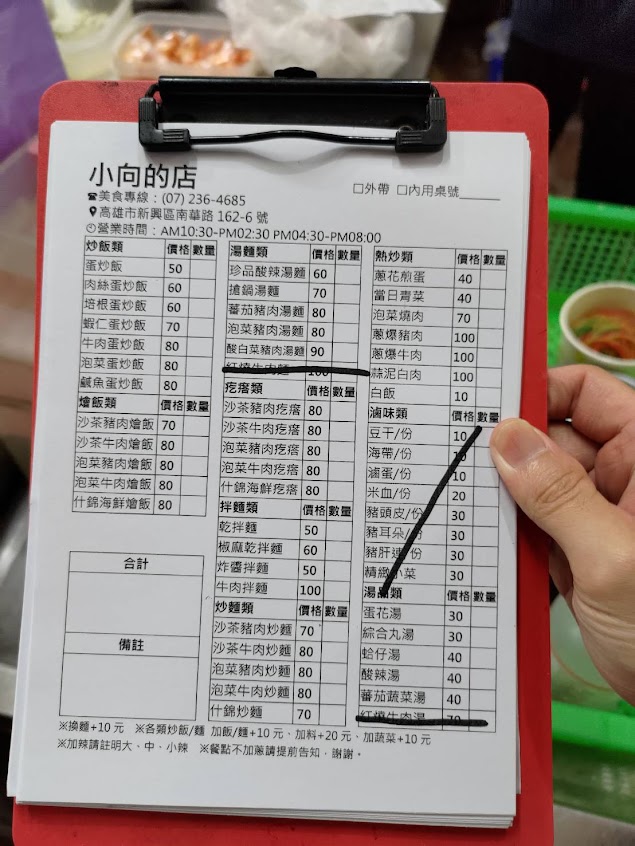 小向的店
☎美食專線：(07) 236-4685
高雄市新興區南華路 162-6 號
營業時間：AM10:30-PM02:30 PM04:30-PM08:00
□外帶 □內用桌號______
炒飯類 價格 數量
蛋炒飯 50
肉絲蛋炒飯 60
培根蛋炒飯 60
蝦仁蛋炒飯 70
牛肉蛋炒飯 80
泡菜蛋炒飯 80
鹹魚蛋炒飯 80
燴飯類 價格 數量
沙茶豬肉燴飯 70
沙茶牛肉燴飯 80
泡菜豬肉燴飯 80
泡菜牛肉燴飯 80
什錦海鮮燴飯 80
合計
備註
湯麵類 價格 數量
珍品酸辣湯麵 60
搶鍋湯麵 70
蕃茄豬肉湯麵 80
泡菜豬肉湯麵 80
酸白菜豬肉湯麵 90
紅燒牛肉麵 100
疙瘩類 價格 數量
沙茶豬肉疙瘩 80
沙茶牛肉疙瘩 80
泡菜豬肉疙瘩 80
泡菜牛肉疙瘩 80
什錦海鮮疙瘩 80
拌麵類 價格 數量
乾拌麵 50
椒麻乾拌麵 60
炸醬拌麵 50
牛肉拌麵 100
炒麵類 價格 數量
沙茶豬肉炒麵 70
沙茶牛肉炒麵 80
泡菜豬肉炒麵 80
泡菜牛肉炒麵 80
什錦炒麵 70
熱炒類 價格 數量
蔥花煎蛋 40
當日青菜 40
泡菜燒肉 70
蔥爆豬肉 100
蔥爆牛肉 100
蒜泥白肉 100
白飯 10
滷味類 價格 數量
豆干/份 10
海帶/份
滷蛋/份 10
米血/份 20
豬頭皮/份 30
豬耳朵/份 30
豬肝連/份 30
精緻小菜 30
湯品類 價格 數量
蛋花湯 30
綜合丸湯 30
蛤仔湯 40
酸辣湯 40
蕃茄蔬菜湯 40
紅燒牛肉湯 70
※換麵+10 元 ※各類炒飯/麵 加飯/麵+10 元、加料+20 元、加蔬菜+10 元
※加辣請註明大、中、小辣 ※餐點不加蔥請提前告知，謝謝。